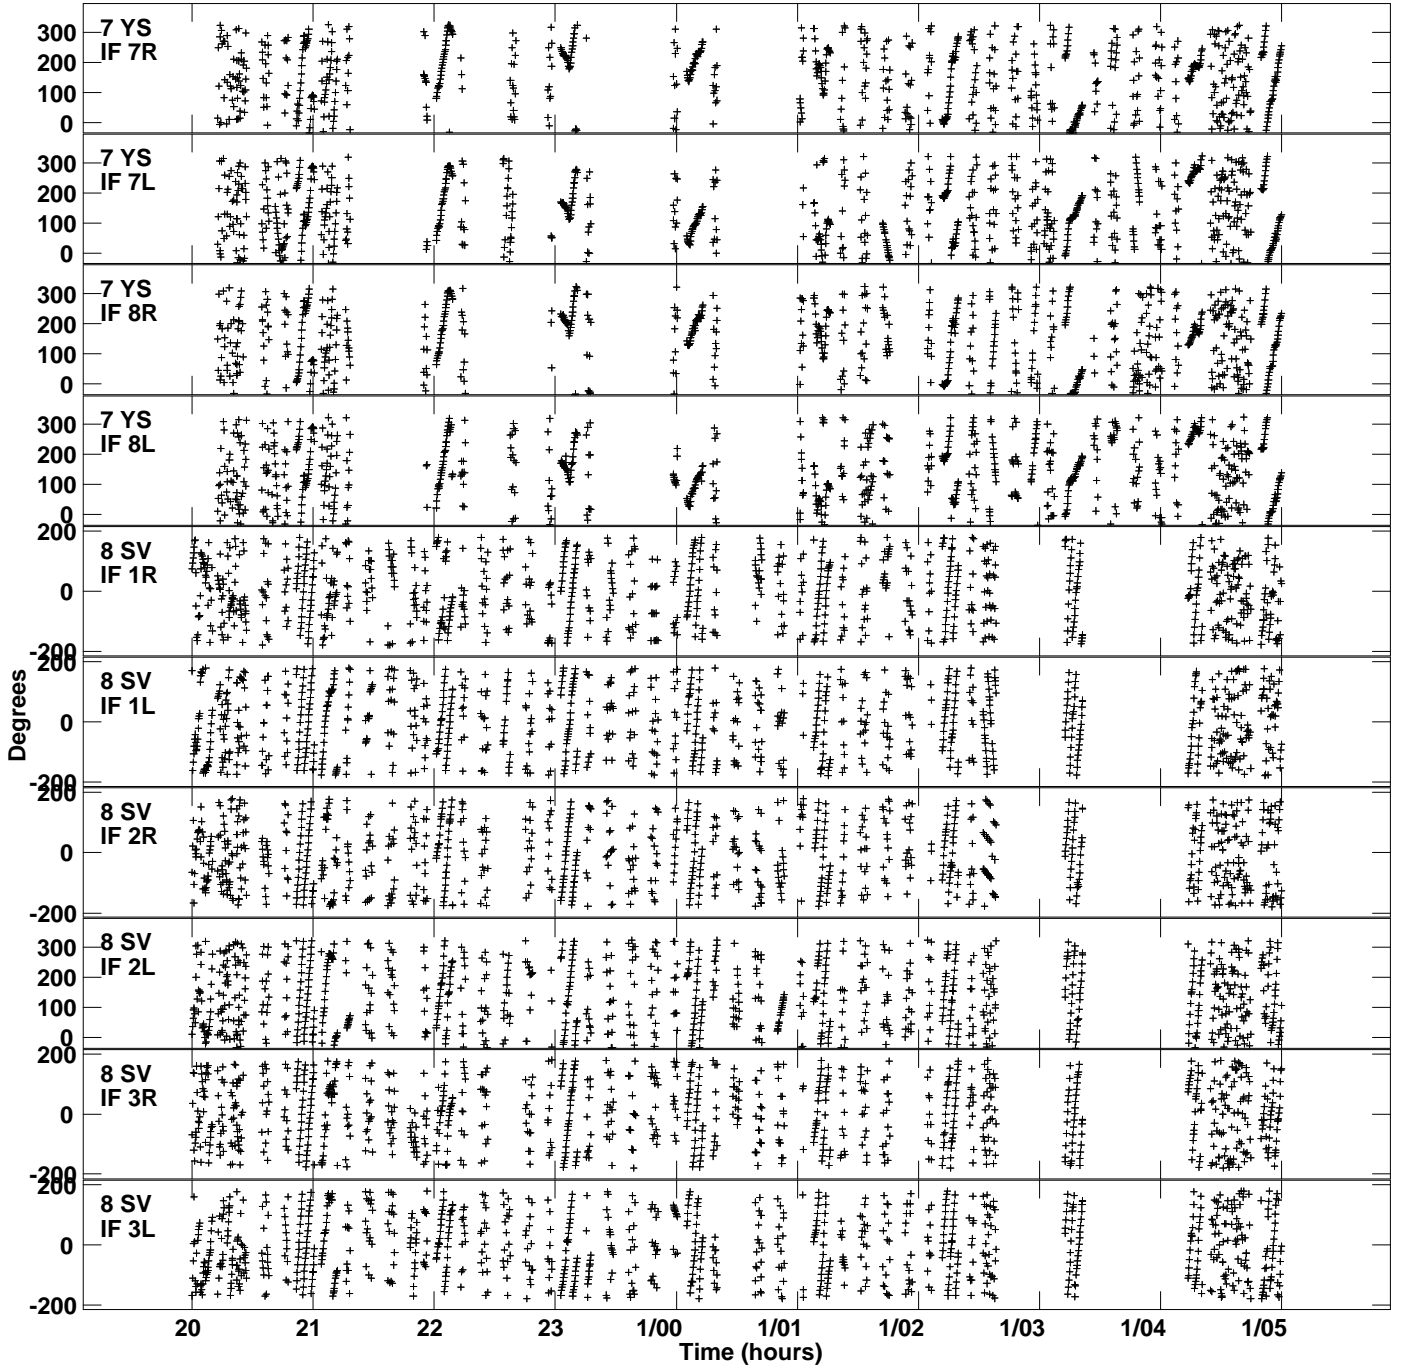 300
200
100
0
7 YS
IF 7R
300
200
100
0
7 YS
IF 7L
300
200
100
0
7 YS
IF 8R
300
200
100
0
7 YS
IF 8L
200
0
-200
8 SV
IF 1R
200
0
-200
8 SV
IF 1L
200
0
-200
8 SV
IF 2R
300
200
100
0
8 SV
IF 2L
200
0
-200
8 SV
IF 3R
200
0
-200
8 SV
IF 3L
Degrees
20 21 22 23 1/00 1/01 1/02 1/03 1/04 1/05
Time (hours)